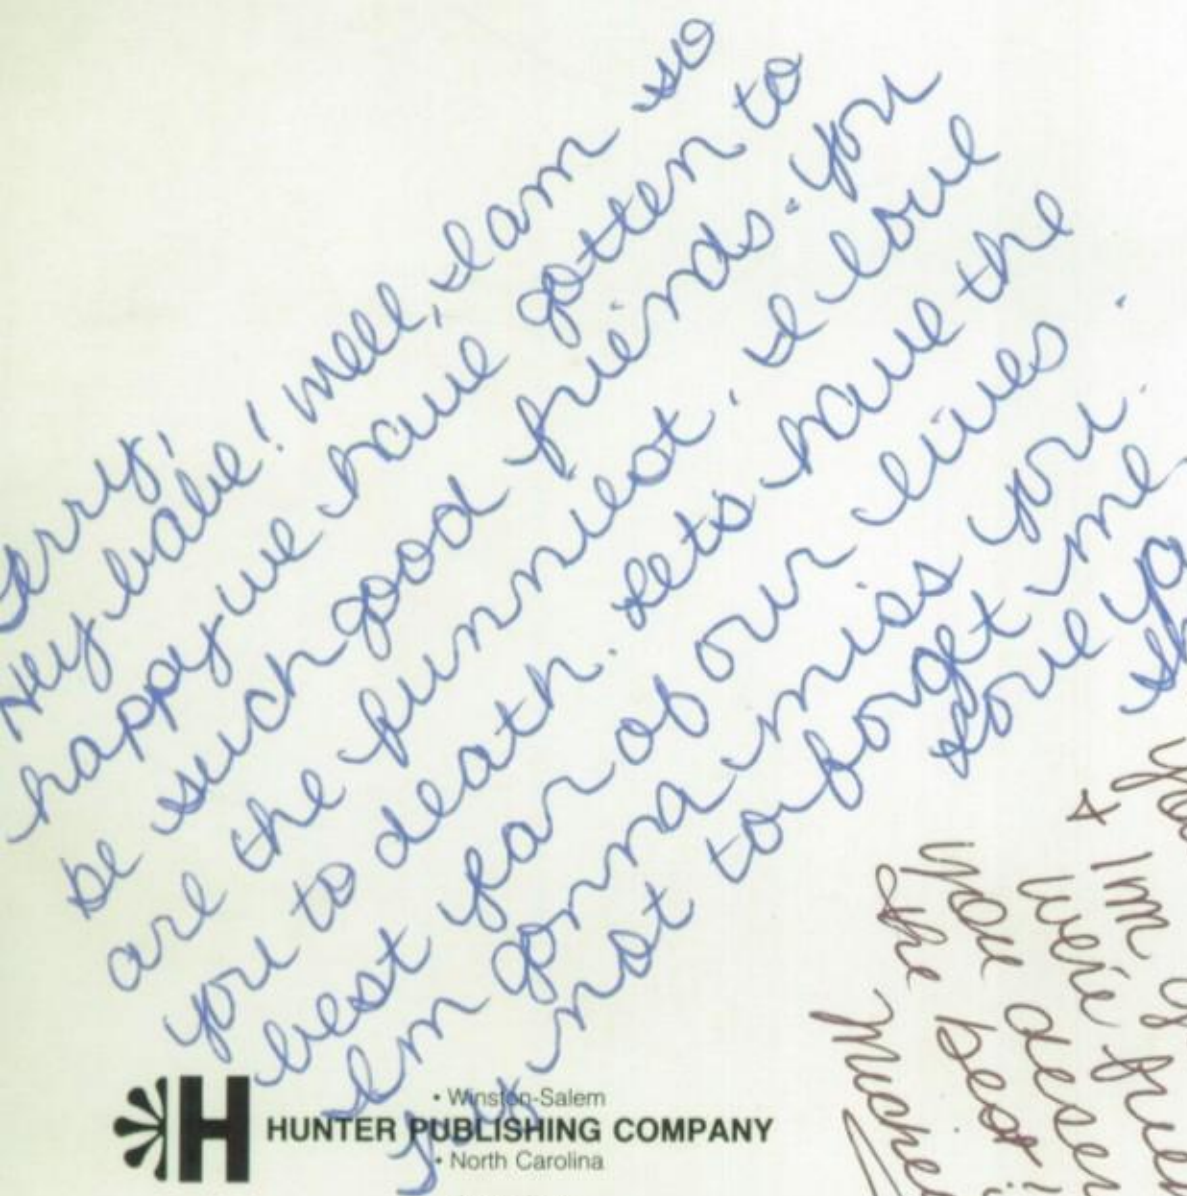 erry,
Hey babe! Well, I am so
happy we have gotten to
be such good friends. You
are the funniest. I love
you to death. Lets have the
best year of our lives.
Im gonna miss you.
not to forget me
Love ya
&
Im
we're
you deser
the best!
Miche
• Winston-Salem
HUNTER PUBLISHING COMPANY
• North Carolina